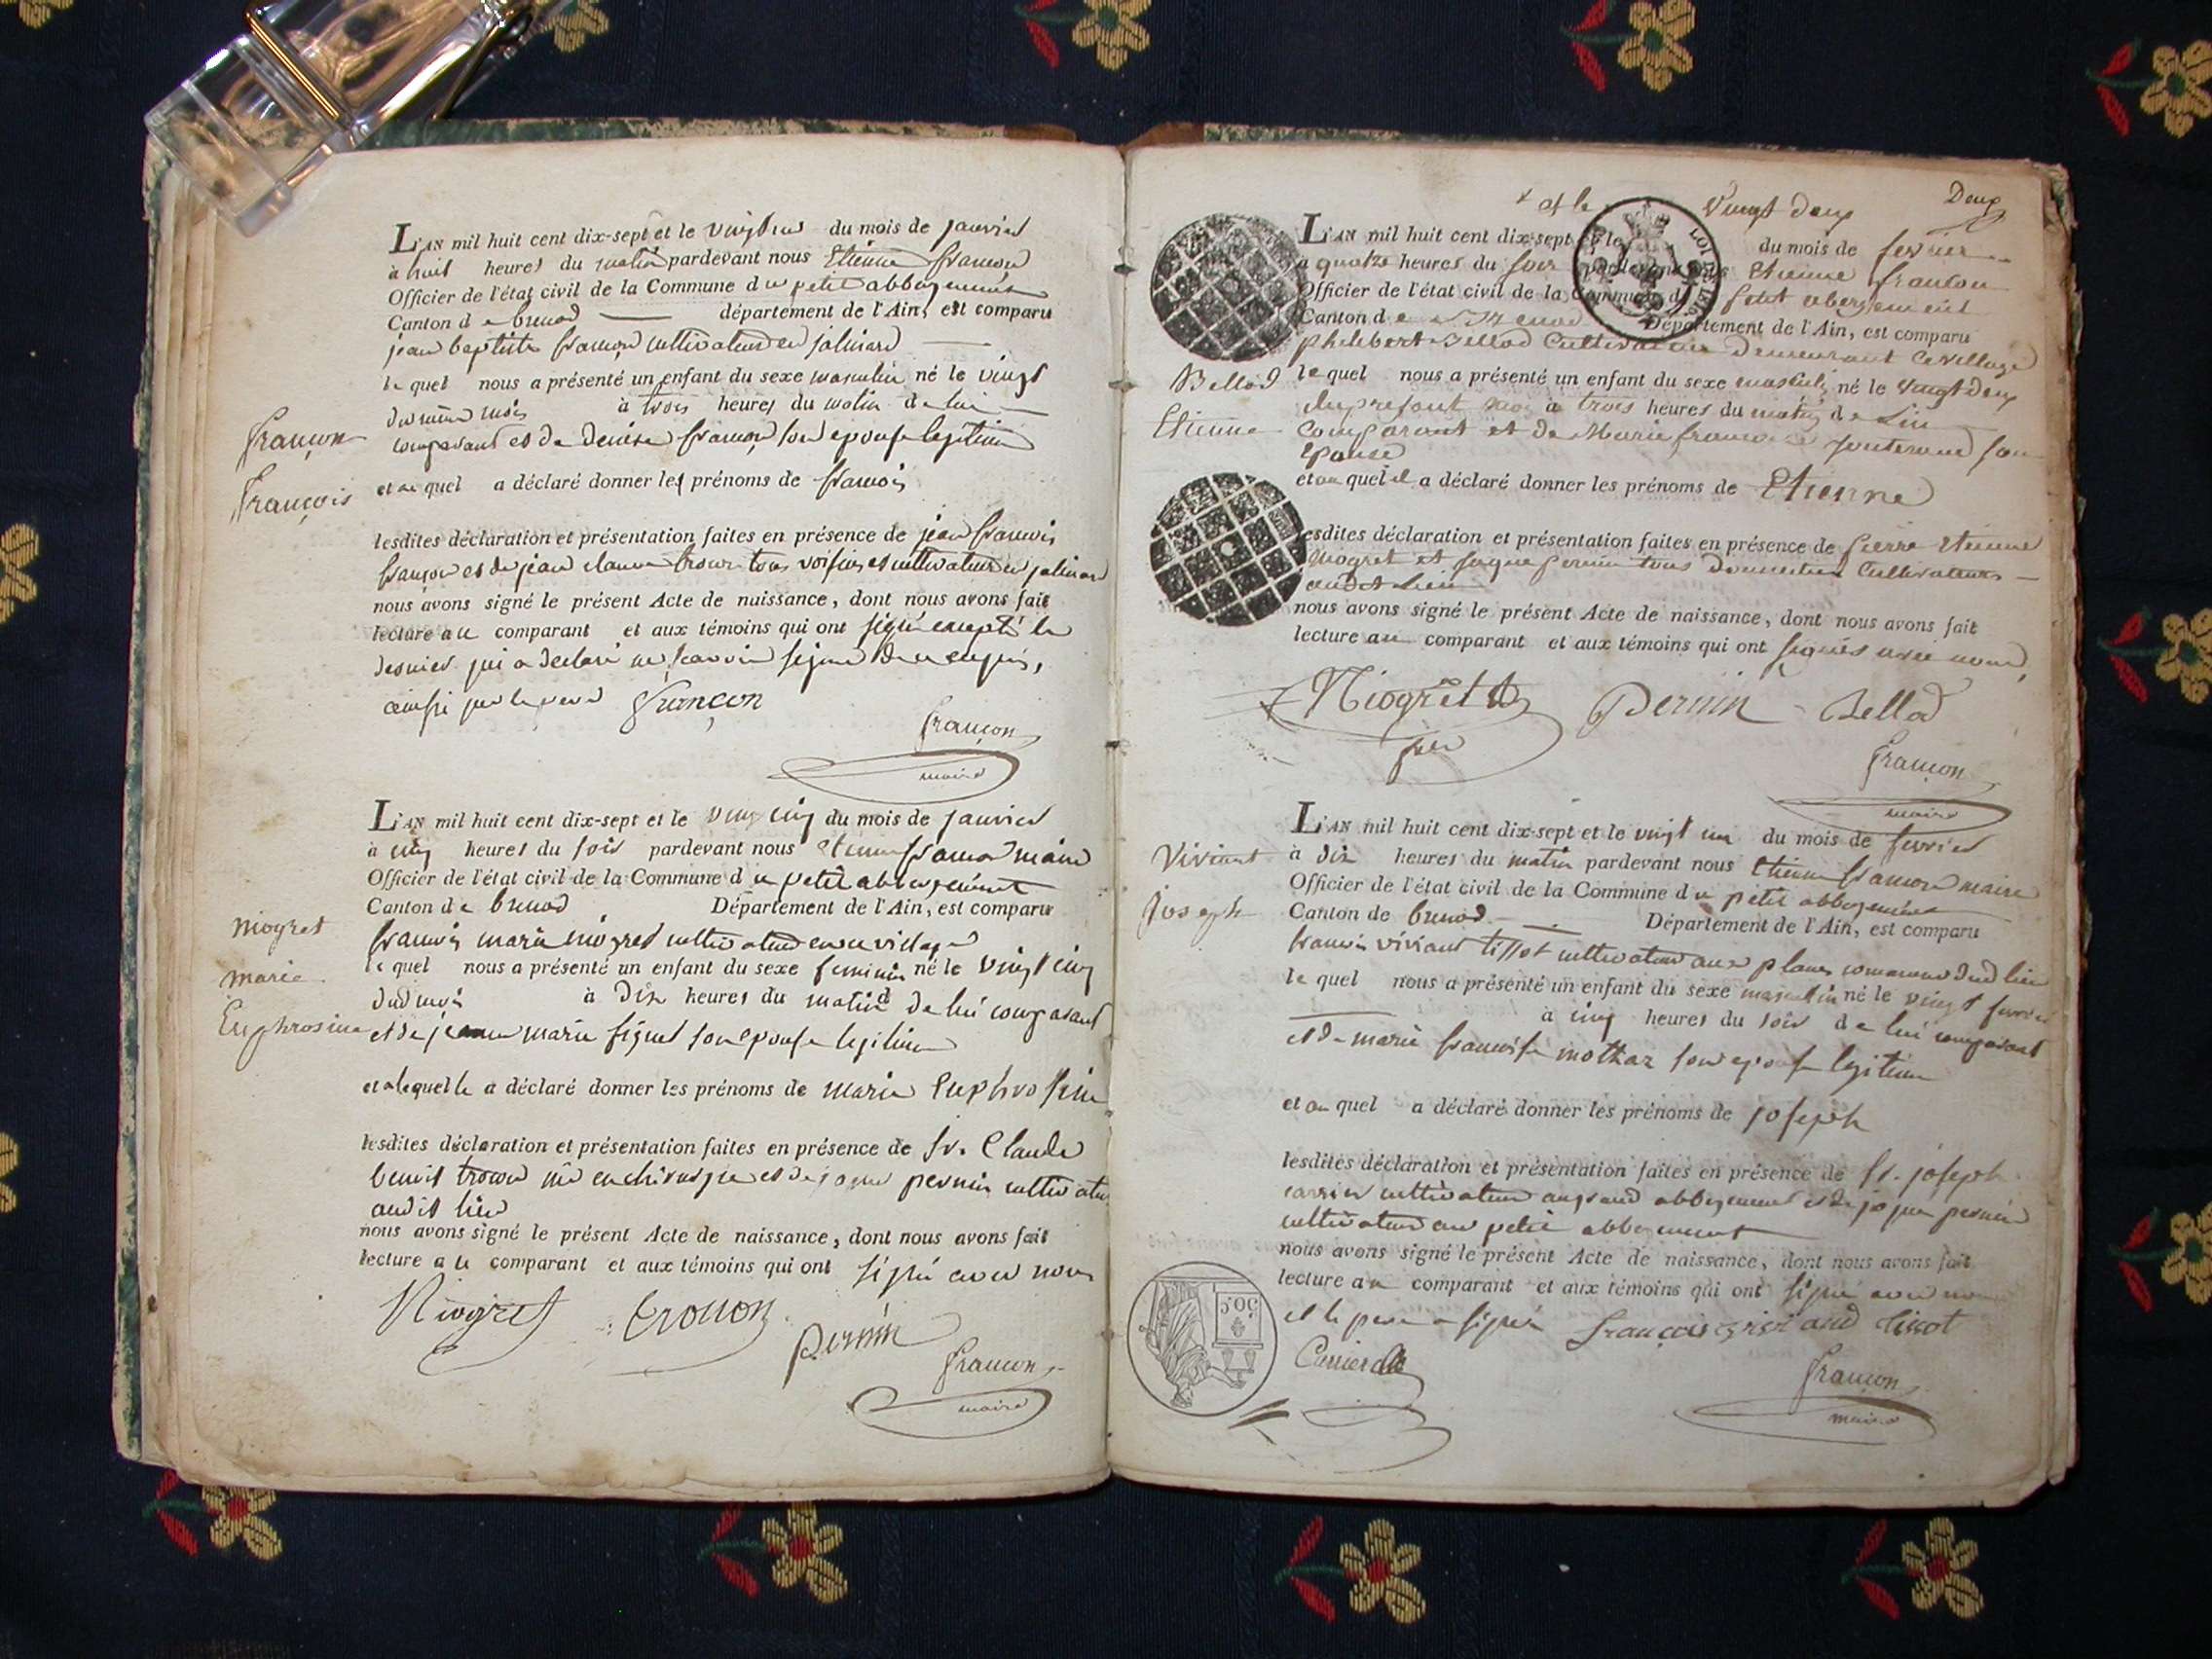 L'AN mil huit cent dix-sept et le du mois de janvier
à huit heures du matin pardevant nous Etienne françon
Officier de l'état civil de la Commune du petit abbergement
Canton de brenod département de l'Ain, est comparu
jean baptiste françon cultivateur en jalinard
le quel nous a présenté un enfant du sexe masculin né le vingt
du même mois à trois heures du matin de lui
comparant et de denise françon son epouse legitime
et auquel a déclaré donner les prénoms de françois
françon
françois
lesdites déclaration et présentation faites en présence de jean françois
françon et de jean claude trouon tous voisins et cultivateurs en jalinard
nous avons signé le présent Acte de naissance, dont nous avons fait
lecture au comparant et aux témoins qui ont signé excepté le
dernier qui a declaré ne scavoir signer de ce enquis,
ainsi que le pere françon
françon
maire
L'AN mil huit cent dix-sept et le vingt cinq du mois de janvier
à cinq heures du soir pardevant nous etienne françon maire
Officier de l'état civil de la Commune du petit abbergement
Canton de brenod Département de l'Ain, est comparu
françois marie niogret cultivateur en ce village
le quel nous a présenté un enfant du sexe feminin né le vingt cinq
dud mois à dix heures du matin de lui comparant
et de jeanne marie signet son epouse legitime
niogret
marie
Euphrosine
et a lequelle a déclaré donner les prénoms de marie Euphrosine
lesdites déclaration et présentation faites en présence de sr. Claude
benoit trouon en chirurgie et de jaque pernin cultivateur
audit lieu
nous avons signé le présent Acte de naissance, dont nous avons fait
lecture au comparant et aux témoins qui ont signé avec nous
Niogret trouon
Pernin
françon
maire
Deux
+ et le vingt deux
L'AN mil huit cent dix-sept et le du mois de fevrier
a quatre heures du soir pardevant nous Etienne françon
Officier de l'état civil de la Commune du petit abergement
Canton de Brenod Département de l'Ain, est comparu
philibert Bellod Cultivateur demeurant ce village
le quel nous a présenté un enfant du sexe masculin né le vingt deux
du present mois à trois heures du matin de Lui
Comparant et de Marie françoise son
Epouse
et au quel il a déclaré donner les prénoms de Etienne
Bellod
Etienne
lesdites déclaration et présentation faites en présence de pierre Etienne
Niogret et jaque pernin tous Cultivateurs
audit Lieu
nous avons signé le présent Acte de naissance, dont nous avons fait
lecture au comparant et aux témoins qui ont signés avec nous,
Niogret Pernin Bellod
françon
maire
L'AN mil huit cent dix-sept et le vingt un du mois de fevrier
à dix heures du matin pardevant nous Etienne françon maire
Officier de l'état civil de la Commune du petit abbergement
Canton de brenod Département de l'Ain, est comparu
françois viviant tissot cultivateur aux planes commune dud lieu
le quel nous a présenté un enfant du sexe masculin né le vingt fevrier
à cinq heures du soir de lui comparant
et de marie françoise mathaz son epouse legitime
Viviant
joseph
et au quel a déclaré donner les prénoms de joseph
lesdites déclaration et présentation faites en présence de sr. joseph
carrier cultivateur au grand abbergement et de jaque pernin
cultivateur au petit abbergement
nous avons signé le présent Acte de naissance, dont nous avons fait
lecture au comparant et aux témoins qui ont signé avec nous
et le pere a signé françois viviand tissot
Carrier
françon
maire
50.C